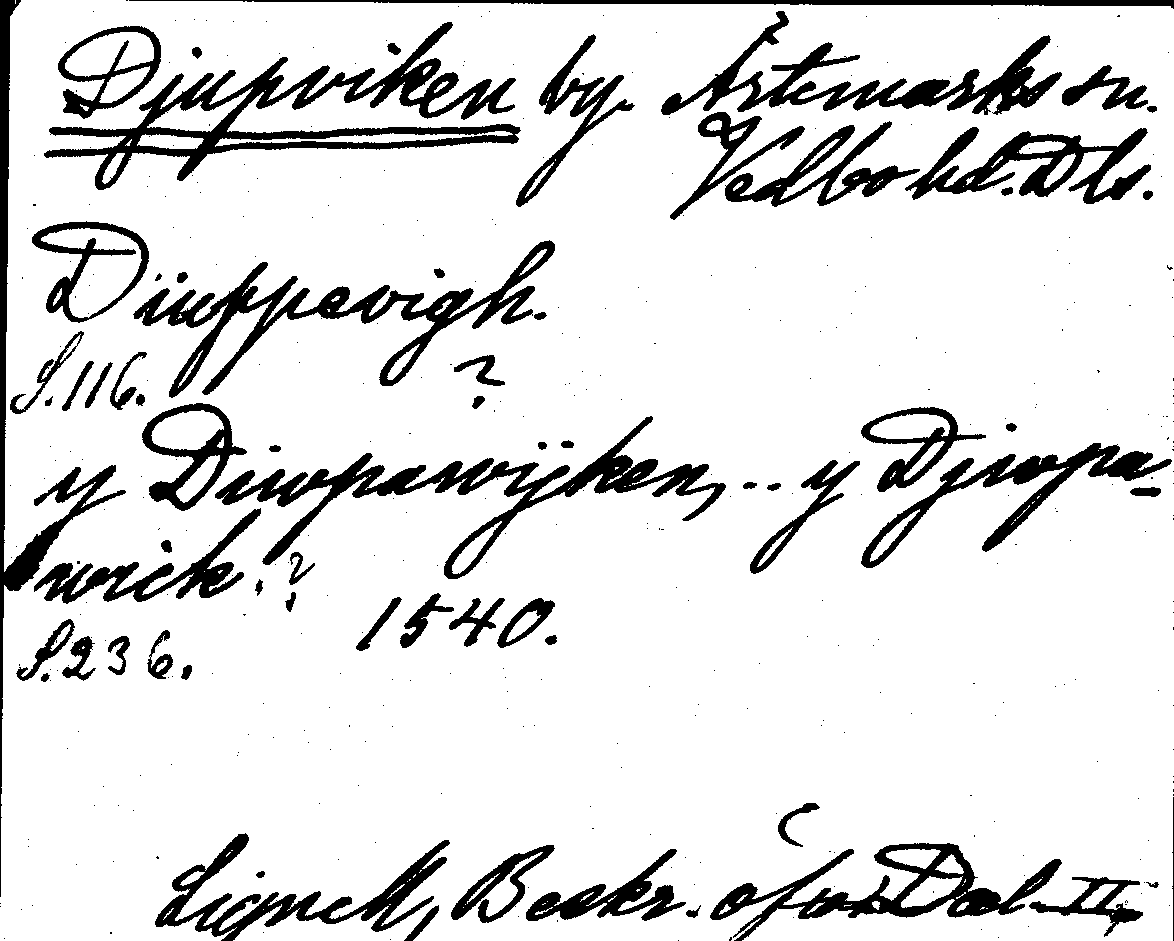 Djupviken by. Ärtemarks sn.
Vedbo hd. Dls.
Diuppevigh.
S. 116. ?
y Diwpawijken, .. y Djwpa-
wick. ?
1540.
S. 236.
Lignell, Beskr. öfver Dal. II,